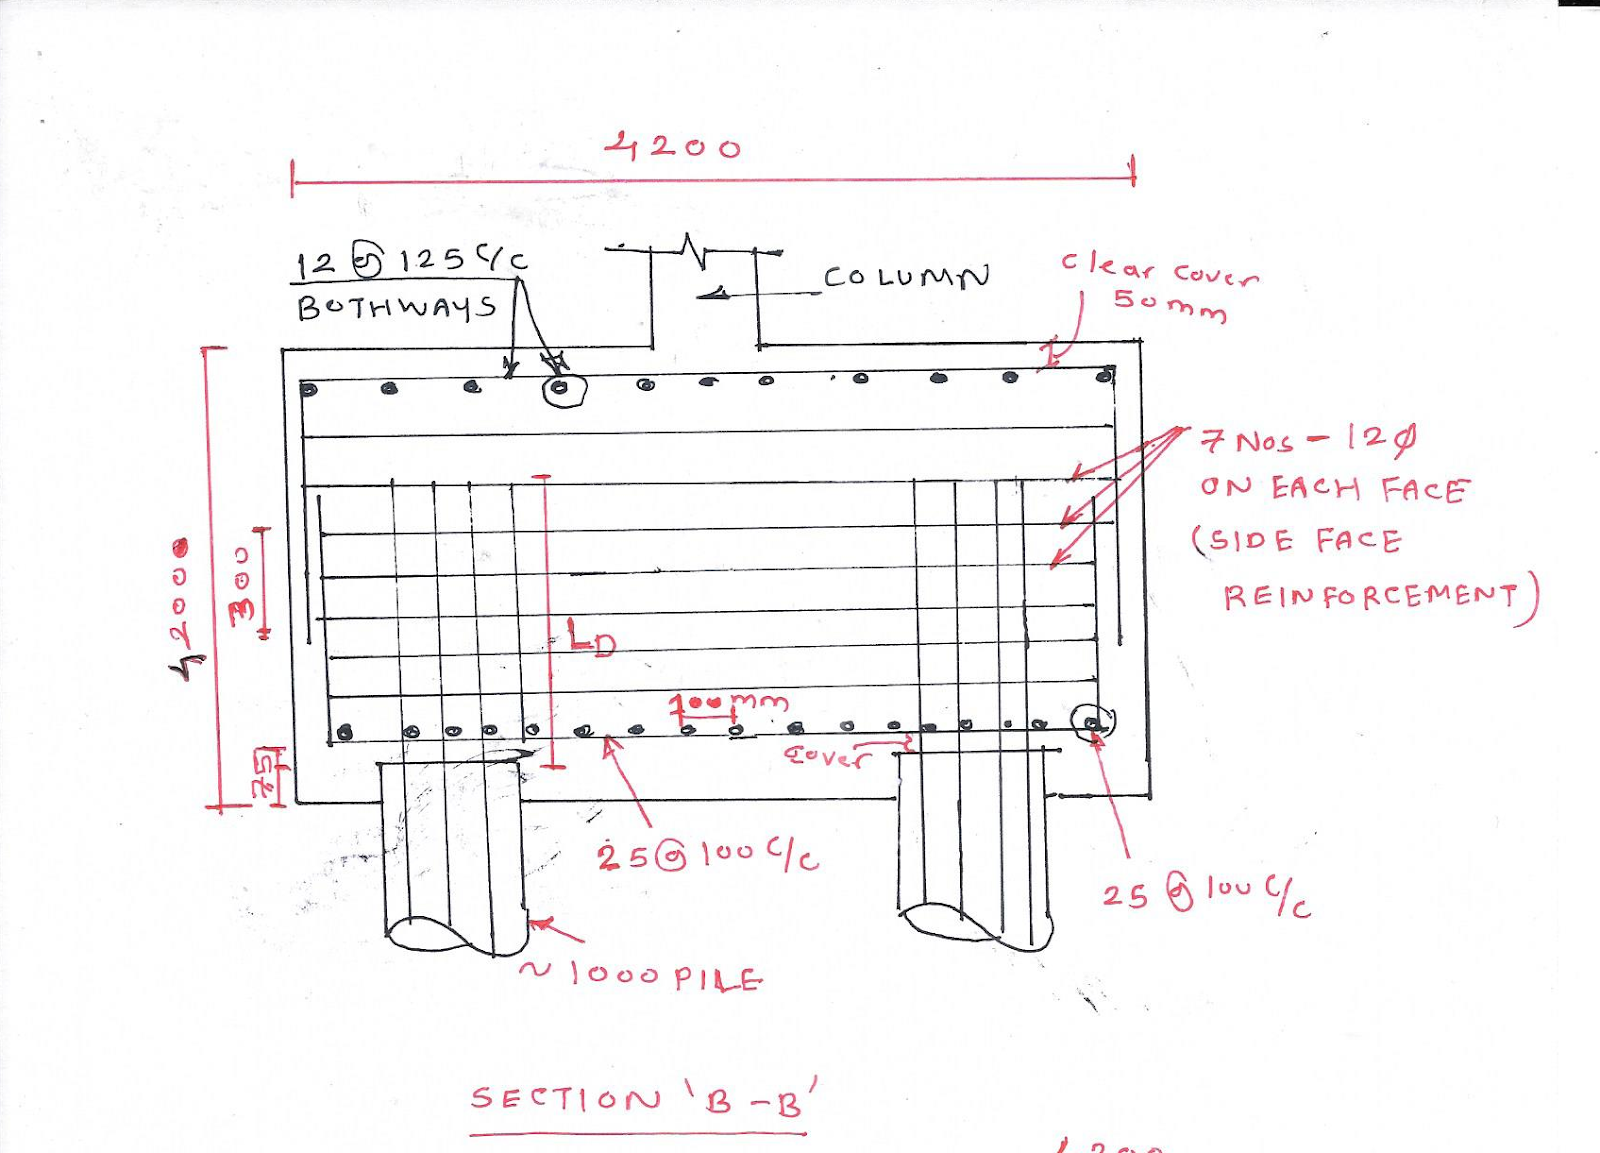 4200
12 @ 125 c/c
BOTHWAYS
COLUMN
clear cover
50mm
7 Nos - 12ø
ON EACH FACE
(SIDE FACE
REINFORCEMENT)
300
LD
100mm
75
cover
25 @ 100 c/c
25 @ 100 c/c
~ 1000 PILE
SECTION 'B-B'